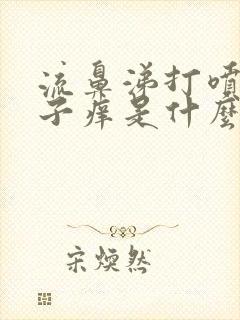 流鼻涕打噴
子痒是什麼
宋煥然